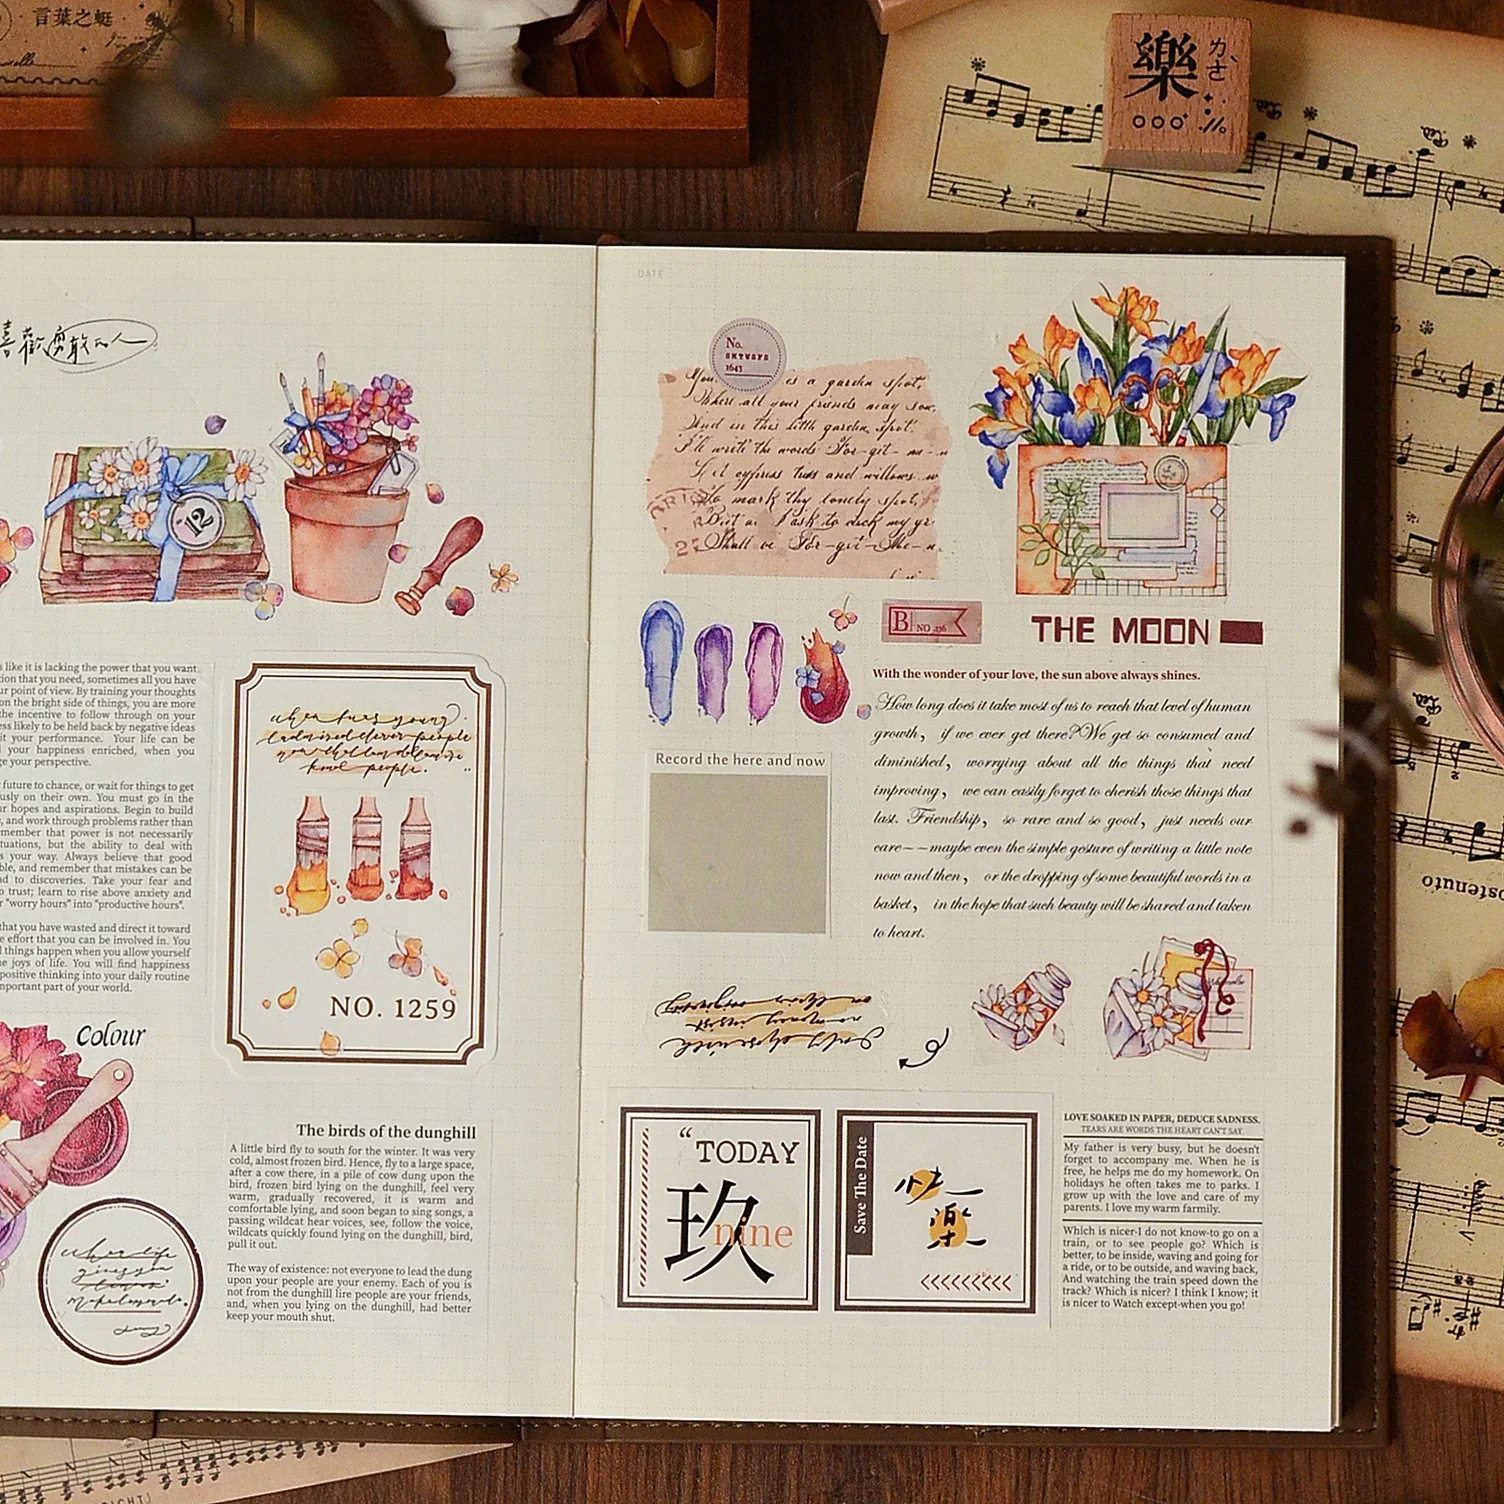 言葉之蜓
樂
DATE
喜歡勇敢的人
No.
1643
is a garden spot,
Where all your friends may sow,
And in this little garden spot,
I'll write the words For-get-me-n
Let cypress trees and willows w
To mark thy lonely spot,
But a I ask to deck my gr
Shall be For-get-Me-n
12
B NO .236
THE MOON
With the wonder of your love, the sun above always shines.
How long does it take most of us to reach that level of human
growth, if we ever get there?We get so consumed and
diminished, worrying about all the things that need
improving, we can easily forget to cherish those things that
last. Friendship, so rare and so good, just needs our
care——maybe even the simple gesture of writing a little note
now and then, or the dropping of some beautiful words in a
basket, in the hope that such beauty will be shared and taken
to heart.
Record the here and now
s like it is lacking the power that you want
tion that you need, sometimes all you have
ur point of view. By training your thoughts
on the bright side of things, you are more
the incentive to follow through on your
ess likely to be held back by negative ideas
it your performance. Your life can be
d your happiness enriched, when you
ge your perspective.
future to chance, or wait for things to get
usly on their own. You must go in the
ur hopes and aspirations. Begin to build
, and work through problems rather than
member that power is not necessarily
tuations, but the ability to deal with
s your way. Always believe that good
ble, and remember that mistakes can be
d to discoveries. Take your fear and
o trust; learn to rise above anxiety and
r "worry hours" into "productive hours".
that you have wasted and direct it toward
e effort that you can be involved in. You
l things happen when you allow yourself
e joys of life. You will find happiness
positive thinking into your daily routine
mportant part of your world.
when i was young.
i admired clever people
now that i am old i admire
kind people.
NO. 1259
Colour
The birds of the dunghill
A little bird fly to south for the winter. It was very
cold, almost frozen bird. Hence, fly to a large space,
after a cow there, in a pile of cow dung upon the
bird, frozen bird lying on the dunghill, feel very
warm, gradually recovered, it is warm and
comfortable lying, and soon began to sing songs, a
passing wildcat hear voices, see, follow the voice,
wildcats quickly found lying on the dunghill, bird,
pull it out.
The way of existence: not everyone to lead the dung
upon your people are your enemy. Each of you is
not from the dunghill lire people are your friends,
and, when you lying on the dunghill, had better
keep your mouth shut.
when life
gives you
lemons
make lemonade.
“TODAY
玖
nine
Save The Date
快
樂
LOVE SOAKED IN PAPER, DEDUCE SADNESS.
TEARS ARE WORDS THE HEART CAN'T SAY.
My father is very busy, but he doesn't
forget to accompany me. When he is
free, he helps me do my homework. On
holidays he often takes me to parks. I
grow up with the love and care of my
parents. I love my warm farmily.
Which is nicer-I do not know-to go on a
train, or to see people go? Which is
better, to be inside, waving and going for
a ride, or to be outside, and waving back,
And watching the train speed down the
track? Which is nicer? I think I know; it
is nicer to Watch except-when you go!